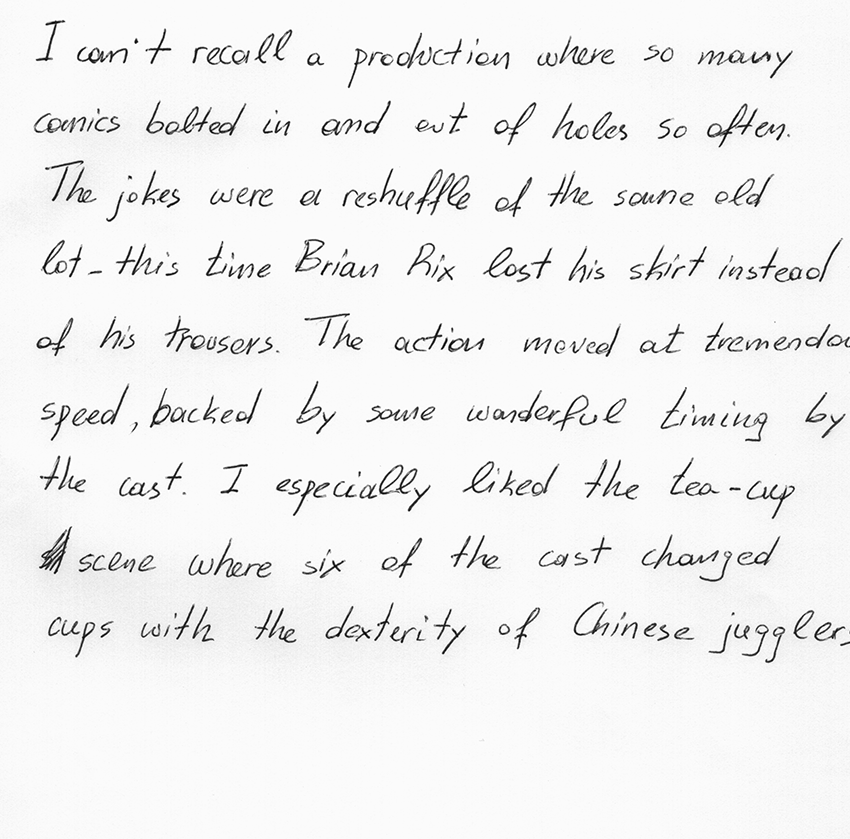 I can't recall a production where so many
comics bolted in and out of holes so often.
The jokes were a reshuffle of the same old
lot - this time Brian Rix lost his skirt instead
of his trousers. The action moved at tremendou
speed, backed by some wonderful timing by
the cast. I especially liked the tea-cup
scene where six of the cast changed
cups with the dexterity of Chinese jugglers